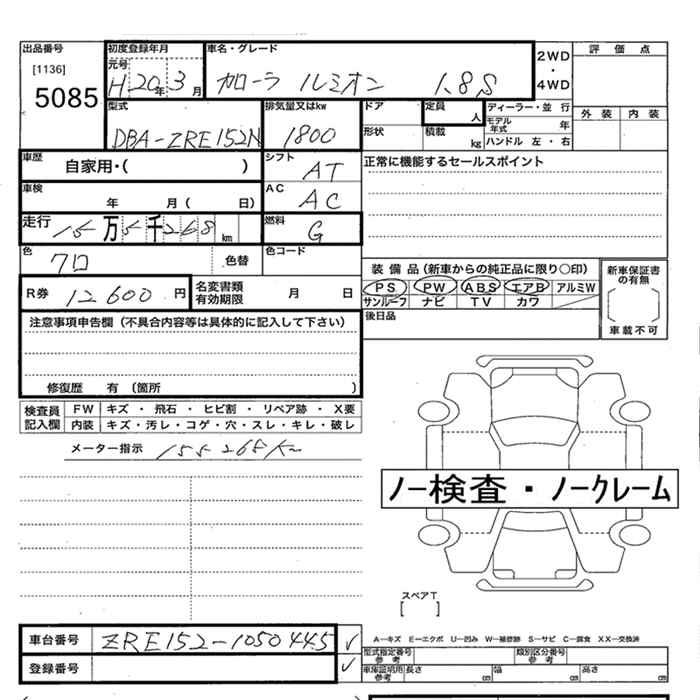 出品番号
[1136]
5085
初度登録年月
元号
H 20年 3月
車名・グレード
カローラ ルミオン 1.8S
2WD
・
4WD
評価点
外装 内装
型式
DBA-ZRE152N
排気量又はkw
1800
ドア
形状
定員
人
積載
kg
ディーラー・並行
モデル年式 年
ハンドル 左・右
車歴
自家用・( )
シフト
AT
正常に機能するセールスポイント
車検
年 月( 日)
AC
AC
走行
15万5千268km
燃料
G
色
クロ
色替
色コード
R券 12600円
名変書類有効期限 月 日
装備品(新車からの純正品に限り○印)
PS PW ABS エアB アルミW
サンルーフ ナビ TV カワ
新車保証書の有無
車載不可
後日品
注意事項申告欄(不具合内容等は具体的に記入して下さい)
修復歴 有(箇所 )
検査員記入欄
FW キズ・飛石・ヒビ割・リペア跡・X要
内装 キズ・汚レ・コゲ・穴・スレ・キレ・破レ
メーター指示 155268Km
ノー検査・ノークレーム
スペアT
[ ]
車台番号 ZRE152-1050445 ✓
登録番号 ✓
A-キズ E-エクボ U-凹み W-補修跡 S-サビ C-腐食 XX-交換済
型式指定番号 参考
類別区分番号 参考
車庫証明用 参考 長さ cm 幅 cm 高さ cm